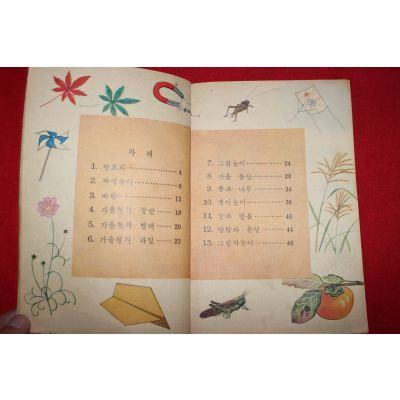 차 례
1. 발표회 ············ 4
2. 자석놀이 ············ 6
3. 바람 ············ 12
4. 가을철의 꽃밭 ······ 18
5. 가을철의 벌레 ······ 20
6. 가을철의 과일 ······ 22
7. 그림놀이 ············ 24
8. 가을 동산 ············ 28
9. 풀과 나무 ············ 34
10. 종이놀이 ············ 36
11. 눈과 얼음 ············ 40
12. 양달과 응달 ············ 44
13. 그림자놀이 ············ 46